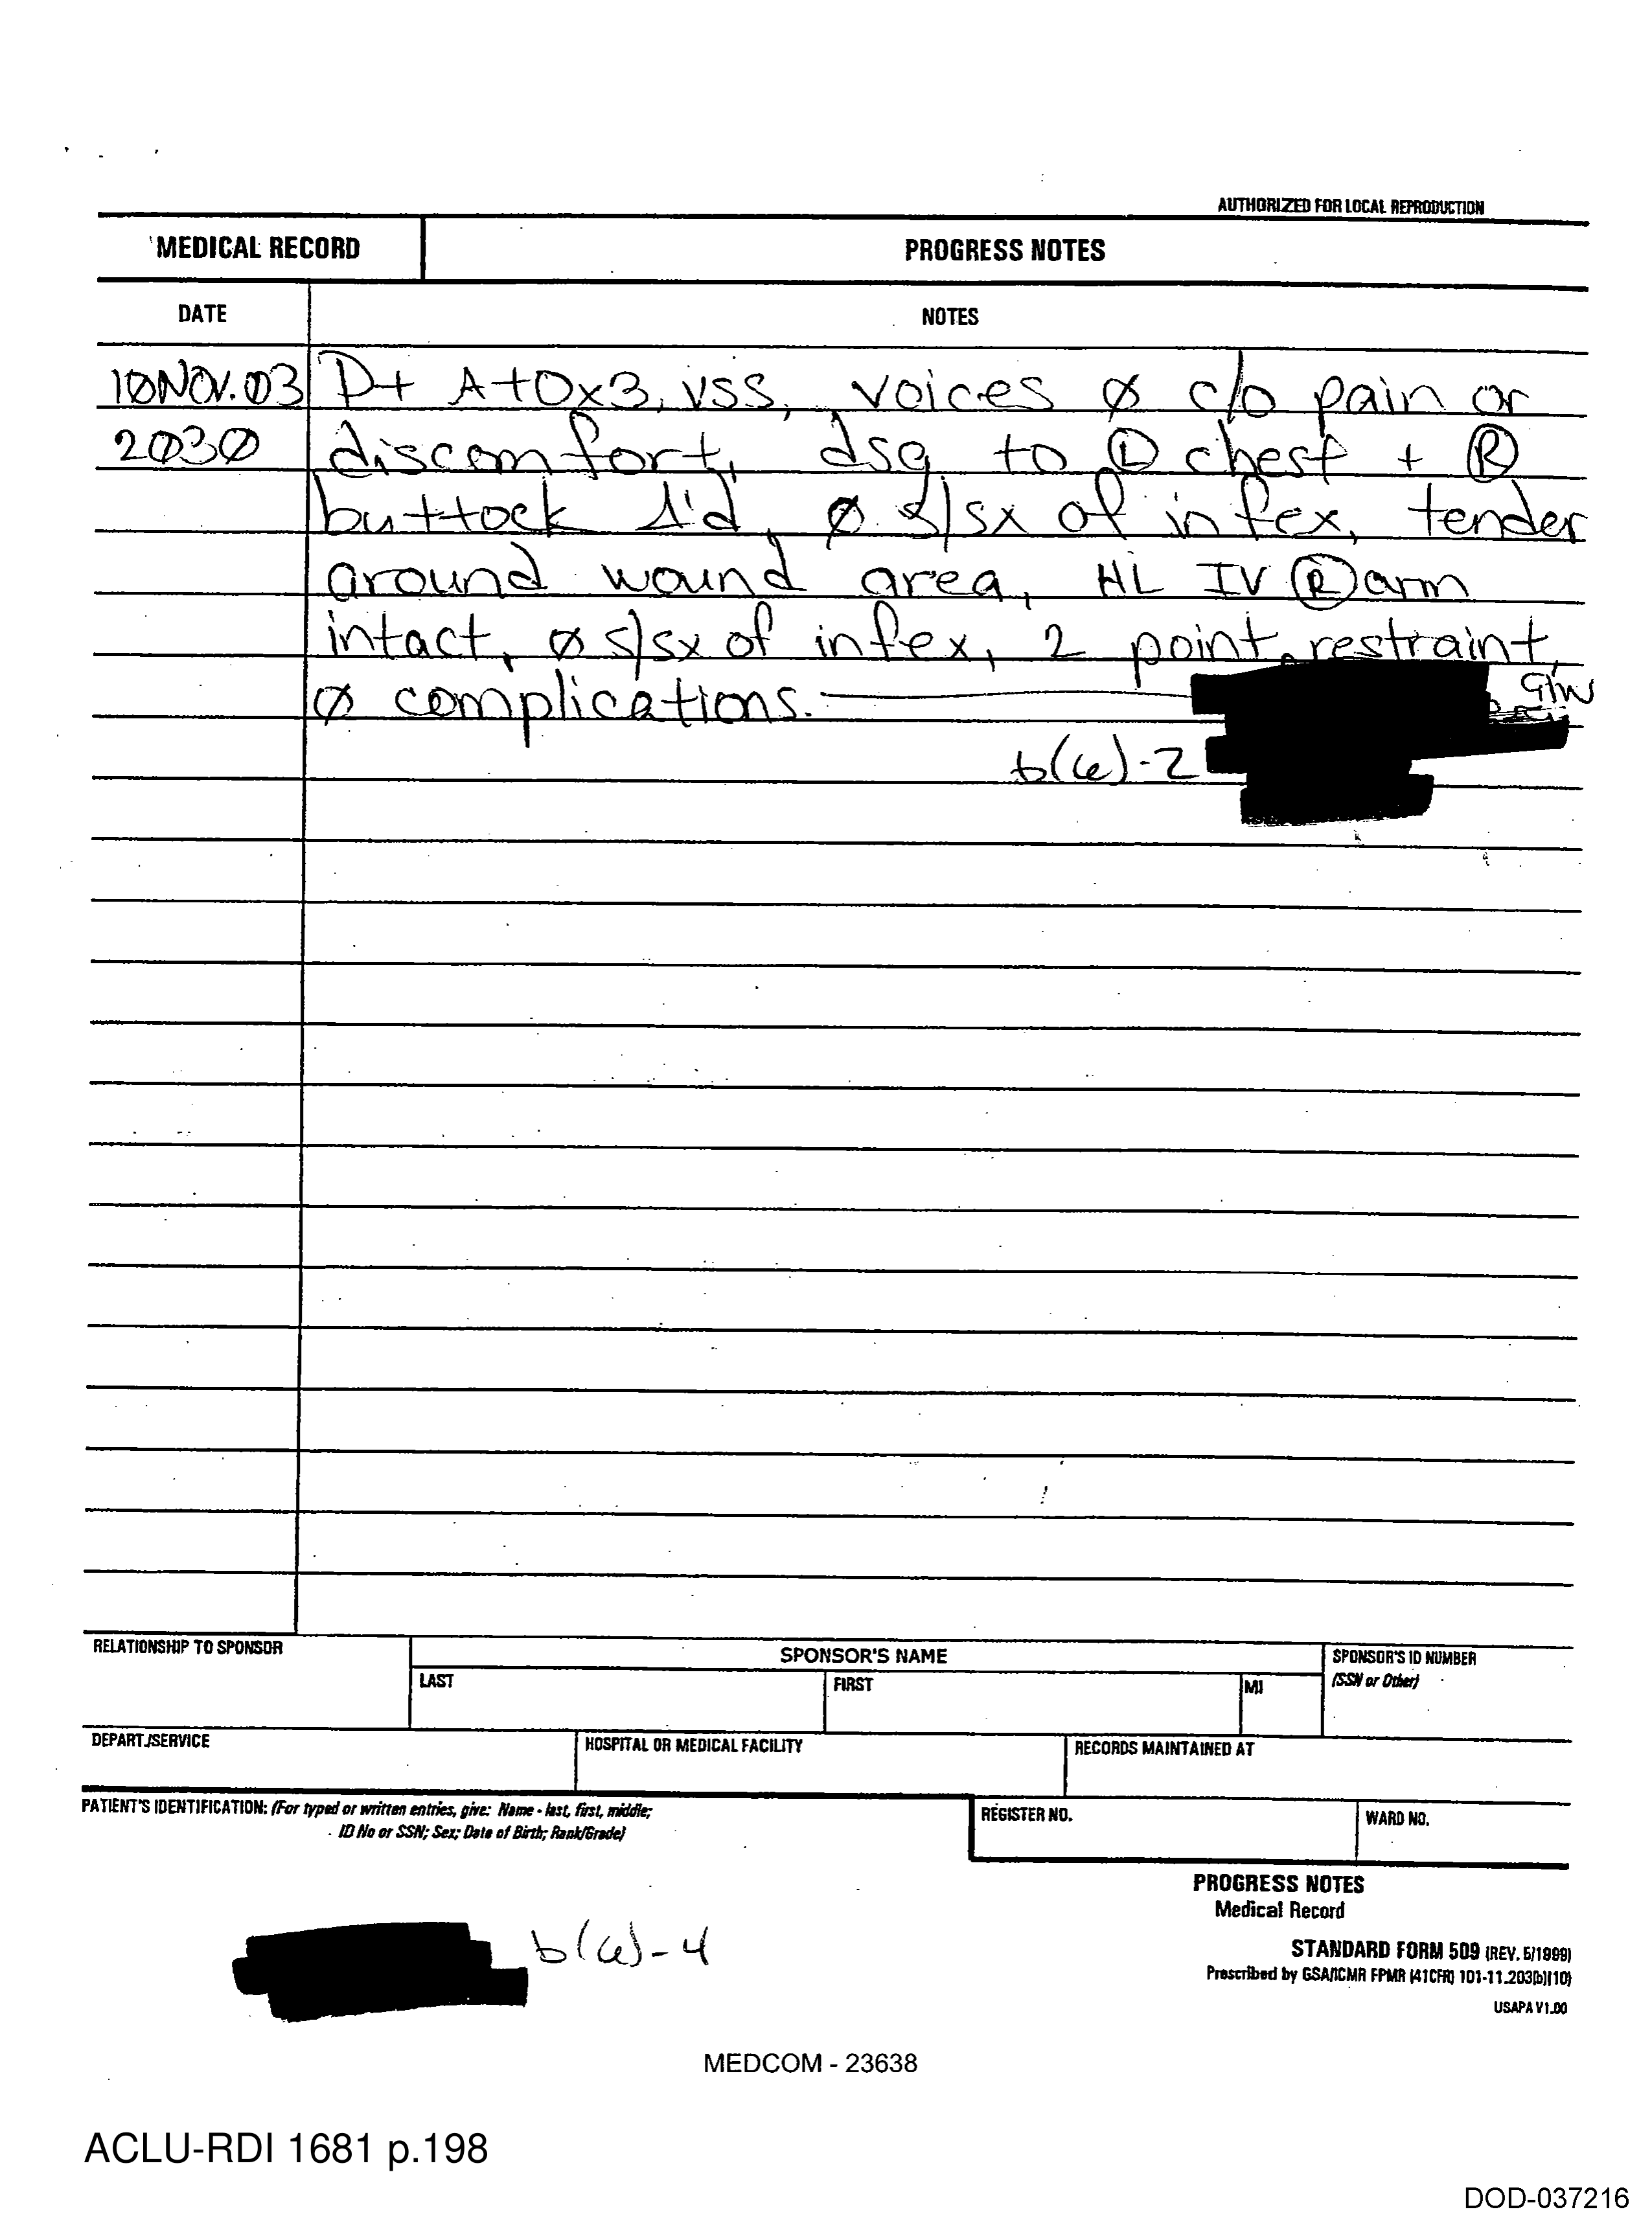 AUTHORIZED FOR LOCAL REPRODUCTION
MEDICAL RECORD PROGRESS NOTES
DATE NOTES
10NOV.03 Pt A+Ox3, VSS, voices ø c/o pain or
2030 discomfort, dsg to Ⓛ chest + Ⓡ
buttock Δ'd, ø s/sx of infex, tender
around wound area, HL IV Ⓡ arm
intact, ø s/sx of infex, 2 point restraint,
ø complications.
b(6)-2
RELATIONSHIP TO SPONSOR SPONSOR'S NAME SPONSOR'S ID NUMBER
LAST FIRST MI (SSN or Other)
DEPART./SERVICE HOSPITAL OR MEDICAL FACILITY RECORDS MAINTAINED AT
PATIENT'S IDENTIFICATION: (For typed or written entries, give: Name - last, first, middle;
ID No or SSN; Sex; Date of Birth; Rank/Grade)
REGISTER NO. WARD NO.
PROGRESS NOTES
Medical Record
b(6)-4
STANDARD FORM 509 (REV. 5/1999)
Prescribed by GSA/ICMR FPMR (41CFR) 101-11.203(b)(10)
USAPA V1.00
MEDCOM - 23638
ACLU-RDI 1681 p.198
DOD-037216